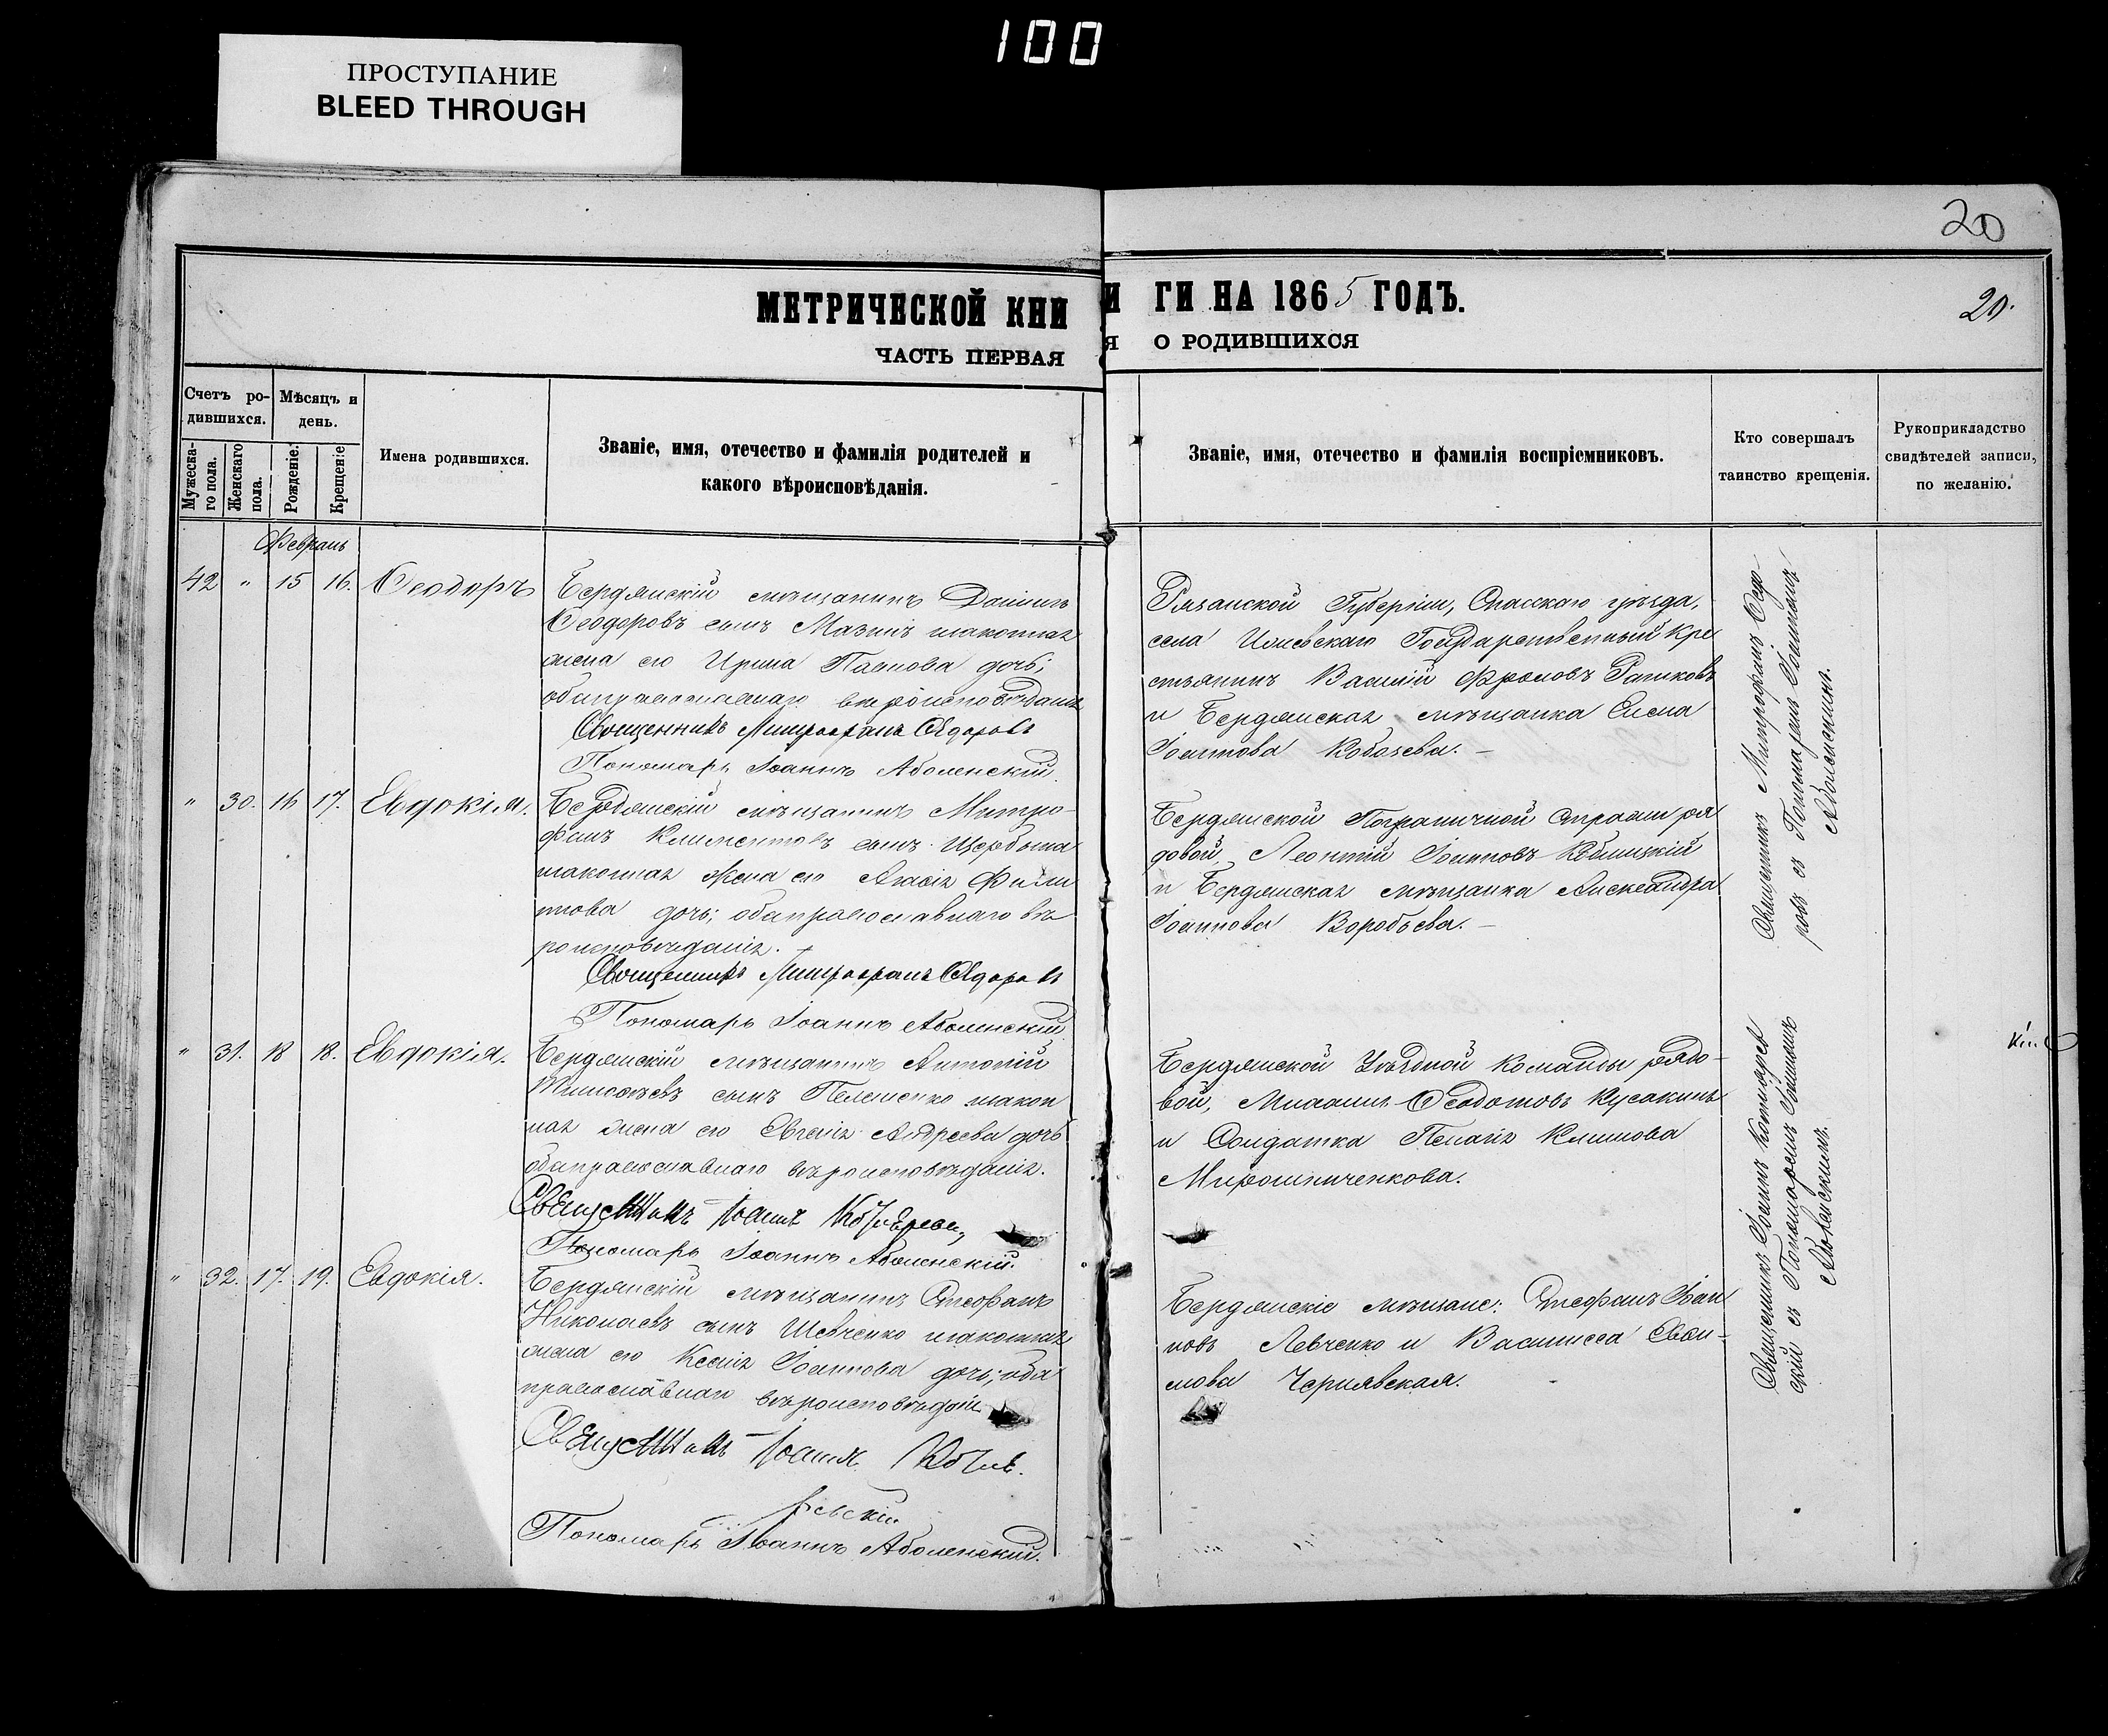 100
ПРОСТУПАНИЕ
BLEED THROUGH
20
МЕТРИЧЕСКОЙ КНИ
И ГИ НА 1865 ГОДЪ.
20.
ЧАСТЬ ПЕРВАЯ
Я О РОДИВШИХСЯ
Счетъ ро-
дившихся.
Мужеска-
го пола.
Женскаго
пола.
Мѣсяцъ и
день.
Рожденіе.
Крещеніе
Имена родившихся.
Званіе, имя, отечество и фамилія родителей и
какого вѣроисповѣданія.
Званіе, имя, отечество и фамилія воспріемниковъ.
Кто совершалъ
таинство крещенія.
Рукоприкладство
свидѣтелей записи,
по желанію.
Февраль
42 " 15 16. Ѳеодоръ
Бердянскій мѣщанинъ Даніилъ
Ѳеодоровъ сынъ Мазинъ законная
жена его Ирина Павлова дочь;
оба православнаго вѣроисповѣданія
Священникъ Митрофанъ Ѳедоровъ
Пономарь Іоаннъ Аболенскій.
Рязанской Губерніи, Спасскаго уѣзда,
села Государственный Кре
стьянинъ Василій Фроловъ
и Бердянская мѣщанка Елена
Іоаннова Кобозева. —
" 30. 16 17. Евдокія.
Бердянскій мѣщанинъ Митро-
фанъ Климентовъ сынъ Щербина
законная жена его Агасія Фили
пова дочь; оба православнаго вѣ
роисповѣданія.
Священникъ Митрофанъ Ѳедоровъ
Пономарь Іоаннъ Аболенскій
Бердянской Пограничной Стражи ря
довой, Леонтій Іоанновъ
и Бердянская мѣщанка Александра
Іоаннова Воробьева. —
Священникъ Митрофанъ Ѳедо-
ровъ съ Пономаремъ Іоанномъ
Аболенскимъ.
" 31. 18 18. Евдокія.
Бердянскій мѣщанинъ Антоній
Тимофѣевъ сынъ Пелешенко закон
ная жена его Евгенія Андреева дочь
оба православнаго вѣроисповѣданія.
Священникъ Іоаннъ
Пономарь Іоаннъ Аболенскій.
Бердянской Уѣздной Команды рядо-
вой, Михаилъ Ѳеодотовъ Кусакинъ
и Солдатка Пелагія Климова
Мирошниченкова.
" 32. 17. 19. Евдокія.
Бердянскій мѣщанинъ Стефанъ
Николаевъ сынъ Шевченко законная
жена его Ксенія Іоаннова дочь; оба
православнаго вѣроисповѣданія
Священникъ Іоаннъ
Пономарь Іоаннъ Аболенскій.
Бердянскіе мѣщане: Стефанъ Іоан
новъ Левченко и Василисса
мова Чернявская.
Священникъ Іоаннъ
скій съ Пономаремъ Іоанномъ
Аболенскимъ.